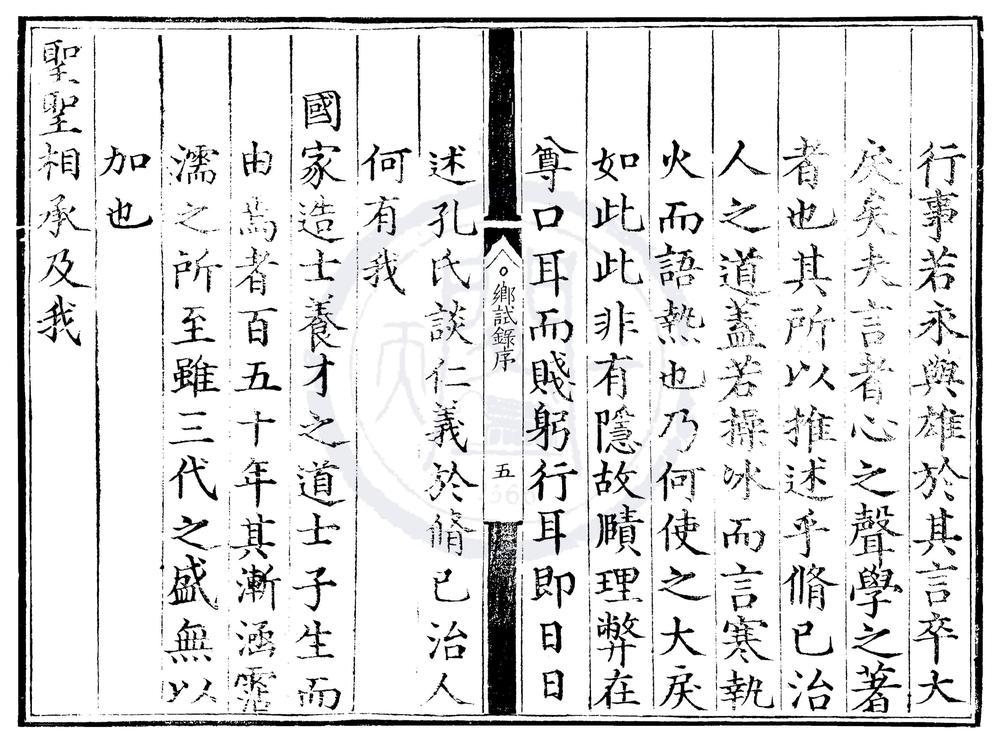 行事若永與雄於其言卒大
戾矣夫言者心之聲學之著
者也其所以推述乎脩已治
人之道蓋若操冰而言寒執
火而語熱也乃何使之大戾
如此此非有隱故賾理弊在
尊口耳而賤躬行耳即日日
鄉試錄序
五
述孔氏談仁義於脩已治人
何有我
國家造士養才之道士子生而
由焉者百五十年其漸涵
濡之所至雖三代之盛無以
加也
聖聖相承及我